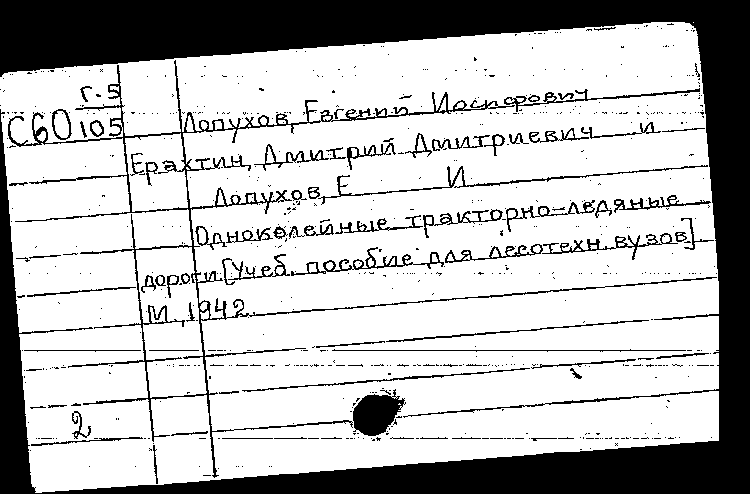 Г-5
С60 105
Лопухов, Евгений Иосифович
Ерахтин, Дмитрий Дмитриевич и
Лопухов, Е И
Одноколейные тракторно-ледяные
дороги [Учеб. пособие для лесотехн. вузов]
М., 1942.
2